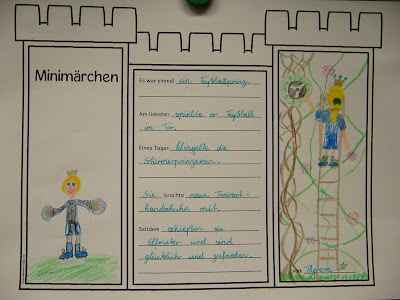 Minimärchen
Es war einmal ein Fußballprinz.
Am liebsten spielte er Fußball
im Tor.
Eines Tages klingelte die
Stürmerprinzessin.
Sie brachte neue Torwart-
handschuhe mit.
Seitdem schießen sie
Elfmeter und sind
glücklich und zufrieden.
von Theresa